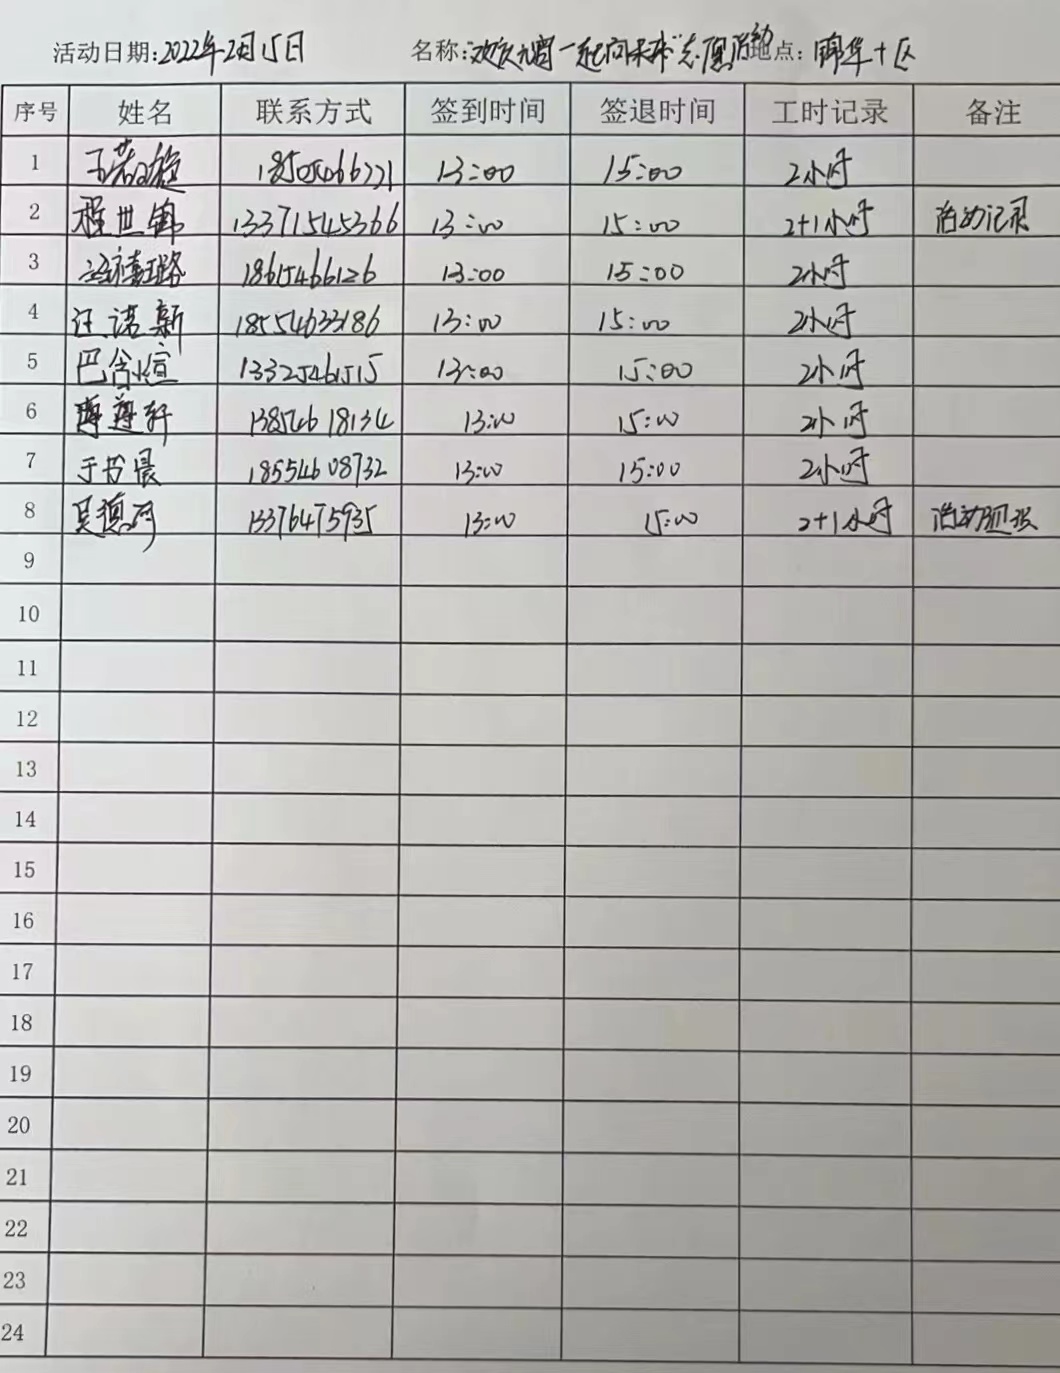 活动日期:2022年2月15日 名称:"欢庆元宵 一起向未来"志愿活动 地点: 锦华十区
序号 姓名 联系方式 签到时间 签退时间 工时记录 备注
1 13:00 15:00 2小时
2 程世锦 13371545366 13:00 15:00 2+1小时 活动记录
3 18615466126 13:00 15:00 2小时
4 汪诺新 18554633186 13:00 15:00 2小时
5 巴含煊 13325461515 13:00 15:00 2小时
6 13854618134 13:00 15:00 2小时
7 于书晨 18554608732 13:00 15:00 2小时
8 13376475935 13:00 15:00 2+1小时
9
10
11
12
13
14
15
16
17
18
19
20
21
22
23
24